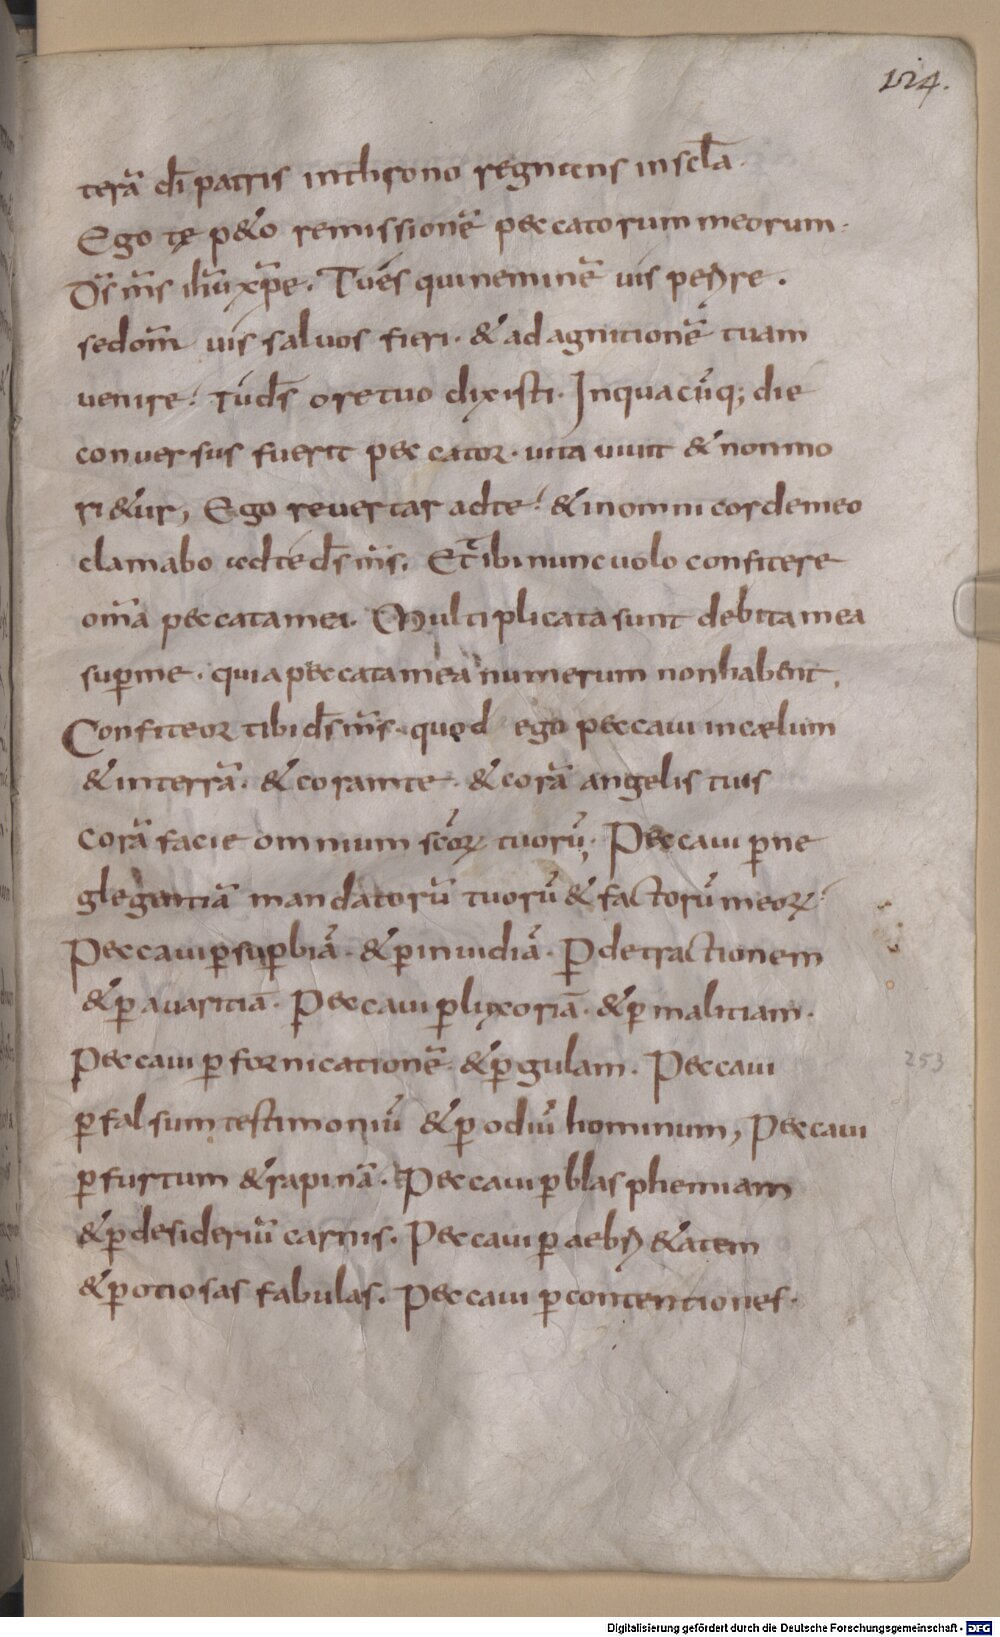 124.
terā dī patris inthrono regnans insclā.
Ego te p&o remissionē peccatorum meorum.
Dˉs mˉs ihū xpe. Tu es quineminē uis perire.
sedom̄ uis saluos fieri. & adagnitionē tuam
uenire. Tu ds̄ oretuo dixisti. Inquacūq; die
conuersus fuerit peccator. uita uiuit & nonmo
ri&ur, Ego reuertar adte. & inomni cordemeo
clamabo adte ds̄ ms̄. Et tibi nunc uolo confitere
om̄a peccatamea. Multiplicata sunt debita mea
sup̄ me. quia peccatamea numerum nonhabent.
Confiteor tibi ds̄ ms̄. quod ego peccaui incælum
& interrā. & coramte. & corā angelis tuis
Corā facie omnium scōrꝝ tuorū. Peccaui p̄ ne
glegentiā mandatorū tuorū & factorū meoꝝ.
Peccaui p̄ sup̄biā. & p̄ inuidiā. P̄ detractionem
& p̄ auaritiā. Peccaui p̄ luxoriā. & p̄ malitiam.
Peccaui p̄ fornicationē & p̄ gulam. Peccaui
p̄ falsum testimoniū & p̄ odiū hominum, Peccaui
p̄ furtum & rapinā. Peccaui p̄ blasphemiam
& p̄ desideriū carnis. Peccaui p̄ &atem
& p̄ otiosas fabulas. Peccaui p̄ contentiones.
253
Digitalisierung gefördert durch die Deutsche Forschungsgemeinschaft - DFG